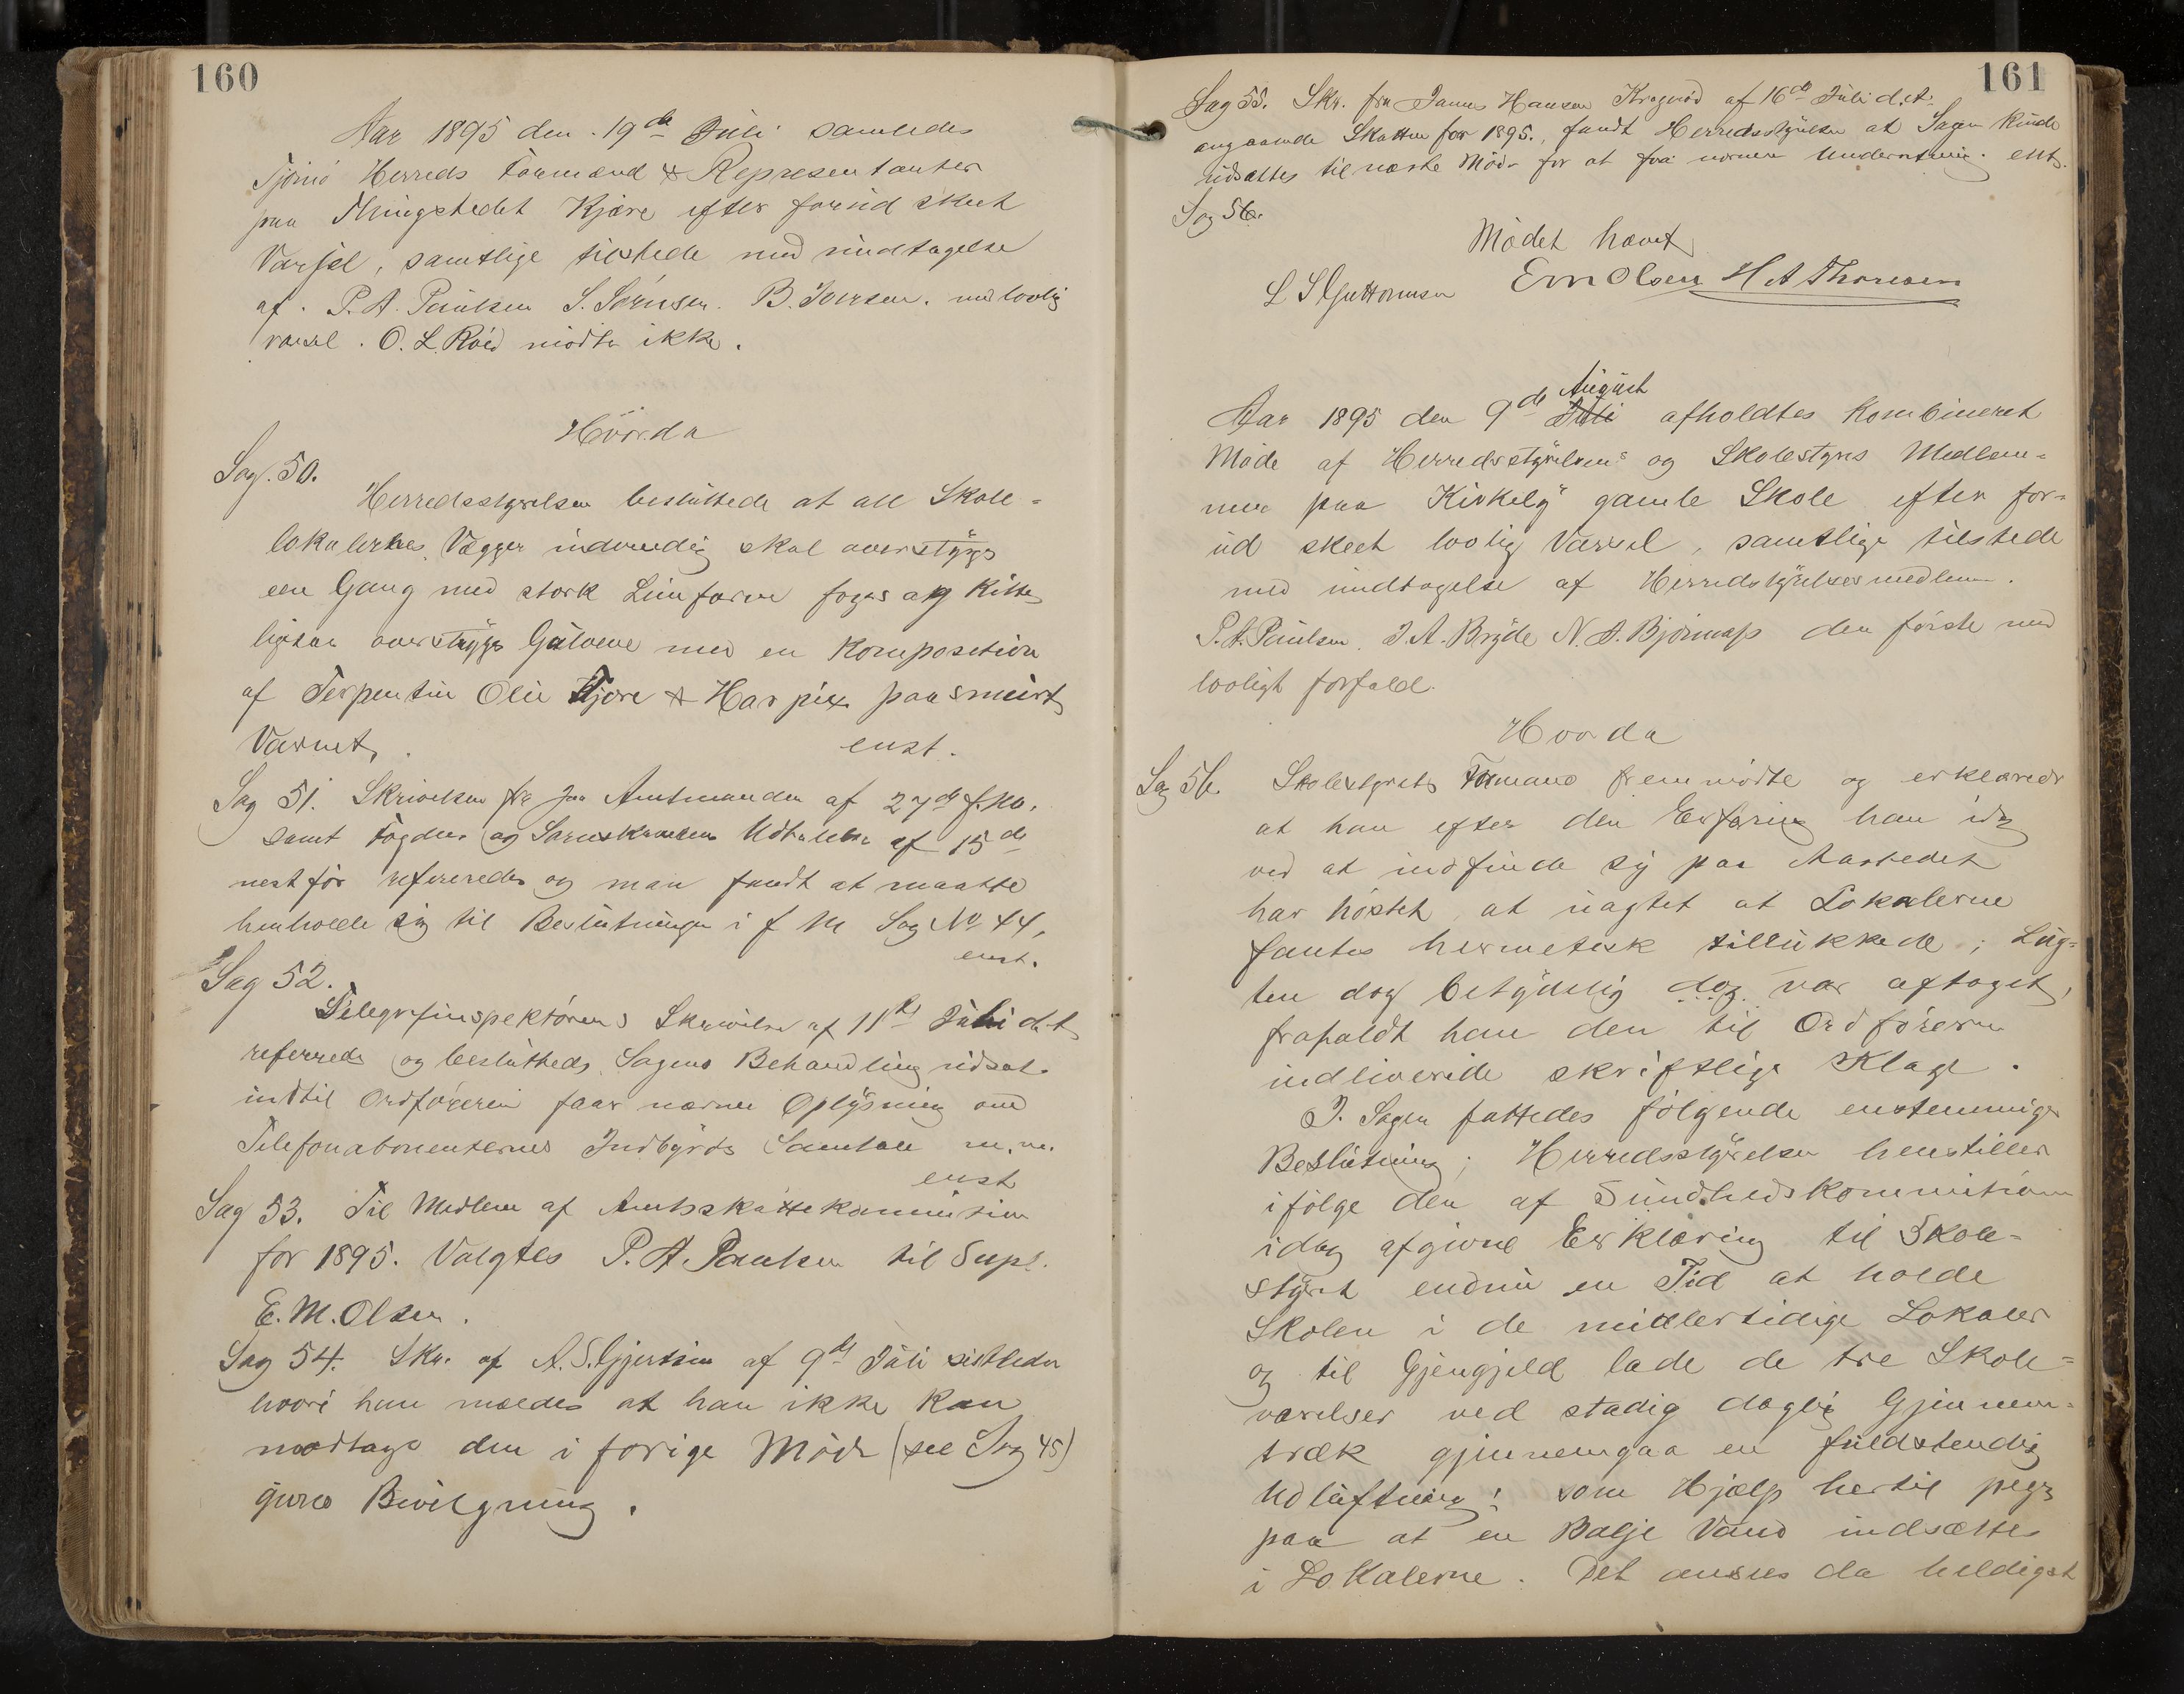 160
Aar 1895 den 19de Juli samledes
Tjømø Herreds Formænd & Representanter
paa Thingstedet Kjære efter forud skeet
Varsel, samtlige tilstede med undtagelse
af P. A. Paulsen S. Sørensen. B. Iversen. med lovlig
varsel. O. L. Røed mødte ikke.
Hvorda
Sag. 50.
Herredsstyrelsen besluttede at all Skole-
lokalernes Vægger indvendig skal overstryges
een Gang med stærk Limfarve foges og Kittes
ligesaa overstryges Gulvene med en Komposition
af Terpentin Olie Tjære & Harpix paasmurt
Varmt. enst.
Sag 51. Skrivelsen fra Amtmanden af 27de f. M.
samt Fogdens og Sorenskriverens Udtalelse af 15de
nestfør refereredes og man fandt at maatte
henholde sig til Beslutningen i f M Sag No 44,
enst.
Sag 52.
Telegrafinspektørens Skrivelse af 11te Juli d. A.
referredes og besluttedes Sagens Behandling udsat
indtil Ordføreren faar nærmere Oplysning om
Telefonabonenternes Indbyrds Samtale m. m.
enst
Sag 53. Til Medlem af Amtsskattekommision
for 1895. Valgtes P. A. Paulsen til Supl.
E. M. Olsen.
Sag 54. Skr. af A. S. Gjertsen af 9de Juli sistleden
hvori han meldes at han ikke kan
modtage den i forige Møde (see Sag 45)
givne Bevilgning.
161
Sag 55. Skr. fra Hansen af 16de Juli d. A.
angaaende Skatten for 1895., fandt Herredsstyrelsen at Sagen kunde
udsættes til næste Møde for at faa nærmere Underretning. enst.
Sag 56.
Mødet hævet
L S Guttormsen Em Olsen H A Thoresen
August
Aar 1895 den 9de Juli afholdtes Kombineret
Møde af Herredsstyrelsens og Skolestyrs Medlem-
mer paa Kirkeby gamle Skole efter for-
ud skeet lovlig Varsel, samtlige tilstede
med undtagelse af Herredstyrelsesmedlem.
P. A. Paulsen. J. A. Bryde N. A. Bjørnaas den første med
lovligt forfald.
Hvorda
Sag 56. Skolestyrets Formand fremmødte og erklærede
at han efter den Erfaring han idag
ved at indfinde sig paa Aastedet
har høstet, at uagtet at Lokalerne
fantes hermetisk tillukkede; Lug-
ten dog betydelig dog var aftaget,
frafaldt han den til Ordføreren
indleverede skriftlige Klage.
I Sagen fattedes følgende enstemmige
Beslutning; Herredsstyrelsen henstiller
ifølge den af Sundhedskommisionen
idag afgivne Erklæring til Skole-
styret endnu en Tid at holde
Skolen i de midlertidige Lokaler
og til Gjengjeld lade de tre Skole-
værelser ved stadig daglig Gjennem-
træk gjennemgaa en fuldstendig
Udluftning! som Hjælp hertil peges
paa at en Balje Vand indsættes
i Lokalerne. Det ansees da heldigst